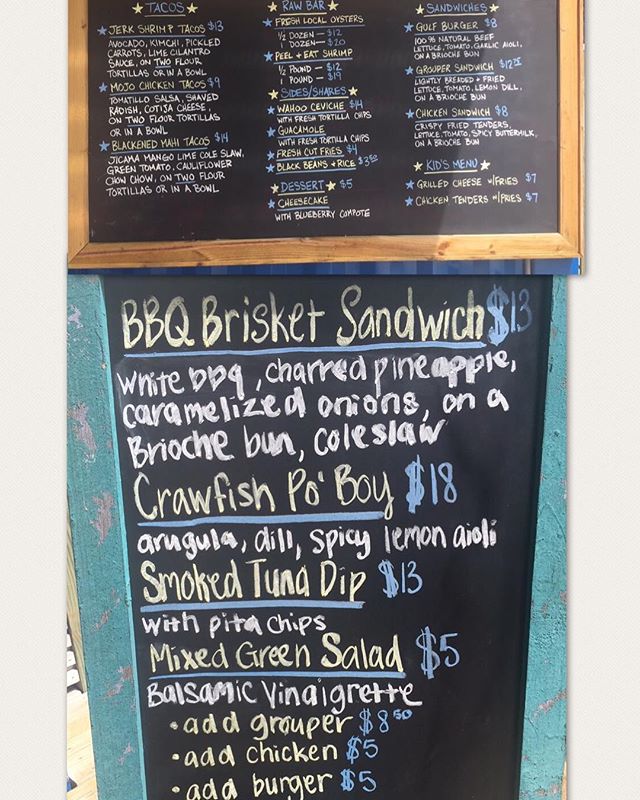 TACOS
JERK SHRIMP TACOS $13
AVOCADO, KIMCHI, PICKLED
CARROTS, LIME CILANTRO
SAUCE, ON TWO FLOUR
TORTILLAS OR IN A BOWL
MOJO CHICKEN TACOS $9
TOMATILLO SALSA, SHAVED
RADISH, COTIJA CHEESE,
ON TWO FLOUR TORTILLAS
OR IN A BOWL
BLACKENED MAHI TACOS $14
JICAMA MANGO LIME COLE SLAW,
GREEN TOMATO, CAULIFLOWER
CHOW CHOW, ON TWO FLOUR
TORTILLAS OR IN A BOWL
RAW BAR
FRESH LOCAL OYSTERS
½ DOZEN - $12
1 DOZEN - $20
PEEL + EAT SHRIMP
½ POUND - $12
1 POUND - $19
SIDES/SHARES
WAHOO CEVICHE $14
WITH FRESH TORTILLA CHIPS
GUACAMOLE
WITH FRESH TORTILLA CHIPS
FRESH CUT FRIES $4
BLACK BEANS + RICE $3.50
DESSERT $5
CHEESECAKE
WITH BLUEBERRY COMPOTE
SANDWICHES
GULF BURGER $8
100% NATURAL BEEF
LETTUCE, TOMATO, GARLIC AIOLI,
ON A BRIOCHE BUN
GROUPER SANDWICH
LIGHTLY BREADED + FRIED
LETTUCE, TOMATO, LEMON DILL,
ON A BRIOCHE BUN
CHICKEN SANDWICH $8
CRISPY FRIED TENDERS,
LETTUCE, TOMATO, SPICY BUTTERMILK,
ON A BRIOCHE BUN
KID'S MENU
GRILLED CHEESE W/FRIES $7
CHICKEN TENDERS W/FRIES $7
BBQ Brisket Sandwich $13
white bbq, charred pineapple,
caramelized onions, on a
Brioche bun, coleslaw
Crawfish Po' Boy $18
arugula, dill, spicy lemon aioli
Smoked Tuna Dip $13
with pita chips
Mixed Green Salad $5
Balsamic Vinaigrette
• add grouper $8.50
• add chicken $5
• add burger $5